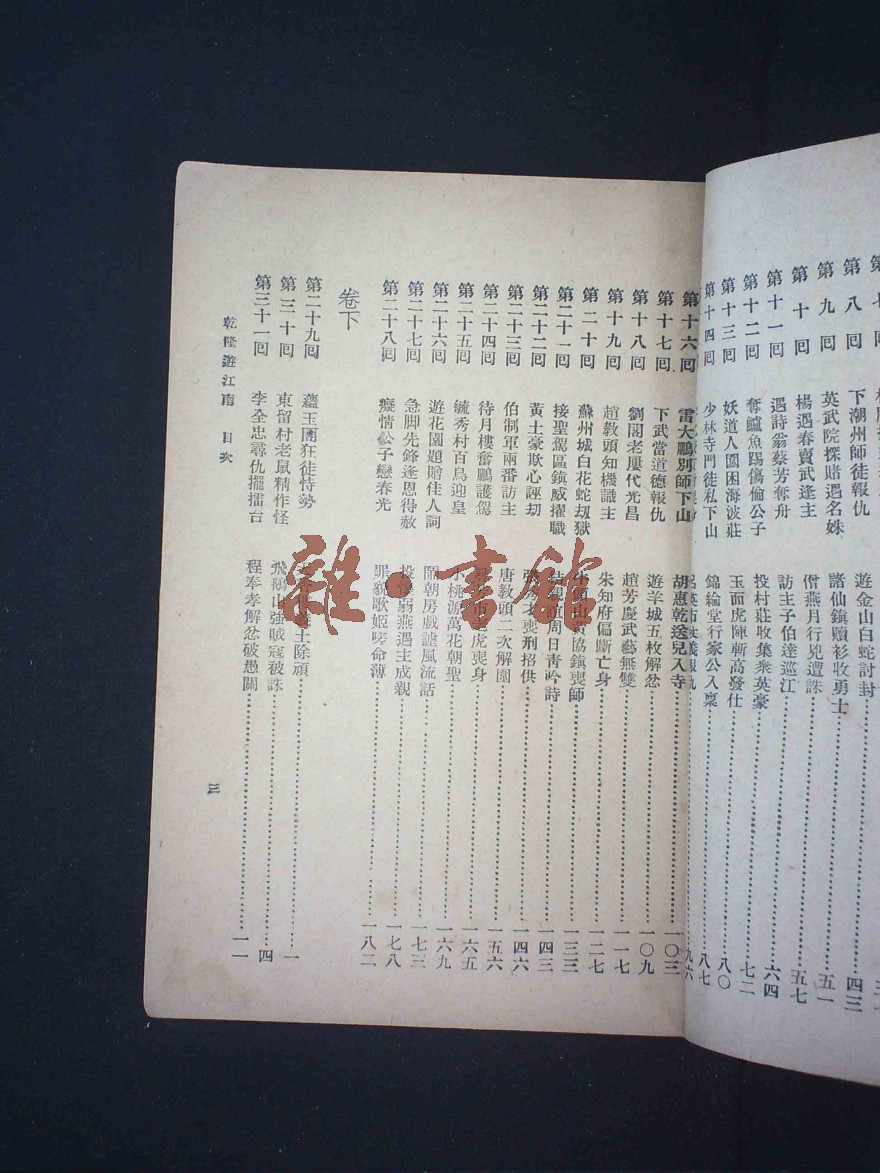 第八回 下潮州師徒報仇 遊金山白蛇討封 四三
第九回 英武院探賭遇名姝 諸仙鎮贖衫收勇士 五一
第十回 楊遇春賣武逢主 僧燕月行兇遭誅 五七
第十一回 遇詩翁蔡芳奪舟 訪主子伯達巡江 六四
第十二回 奪鱸魚踢傷倫公子 投村莊收集衆英豪 七二
第十三回 妖道人圍困海波莊 玉面虎陣斬高發仕 八〇
第十四回 少林寺門徒私下山 錦綸堂行家公入稟 八七
九六
第十六回 雷大鵬別師下山 胡惠乾送兒入寺 一〇三
第十七回 下武當道德報仇 遊羊城五枚解忿 一〇九
第十八回 劉閣老屢代光昌 趙芳慶武藝無雙 一一七
第十九回 趙敎頭知機識主 朱知府偏斷亡身 一二七
第二十回 蘇州城白花蛇刼獄 牛頭山黃協鎮喪師 一三三
第二十一回 接聖駕區鎮威擢職 周日青吟詩 一四三
第二十二回 黃土豪欺心誣刧 張秀才喪刑招供 一四六
第二十三回 伯制軍兩番訪主 唐敎頭二次解圍 一五六
第二十四回 待月樓奮鵬護駕 虎喪身 一六五
第二十五回 毓秀村百鳥迎皇 小桃源萬花朝聖 一六九
第二十六回 遊花園題贈佳人詞 鬧朝房戲謔風流話 一七三
第二十七回 急脚先鋒逢恩得赦 投懷弱燕遇主成親 一七八
第二十八回 癡情公子戀春光 罪貌歌姬嗟命薄 一八二
卷下
第二十九回 蘊玉閣狂徒恃勢 士除頑 一
第三十回 東留村老鼠精作怪 飛鵝山強賊寇被誅 四
第三十一回 李全忠尋仇擺擂台 程奉孝解忿破愚關 一一
乾隆遊江南 目次
三
雜·書館